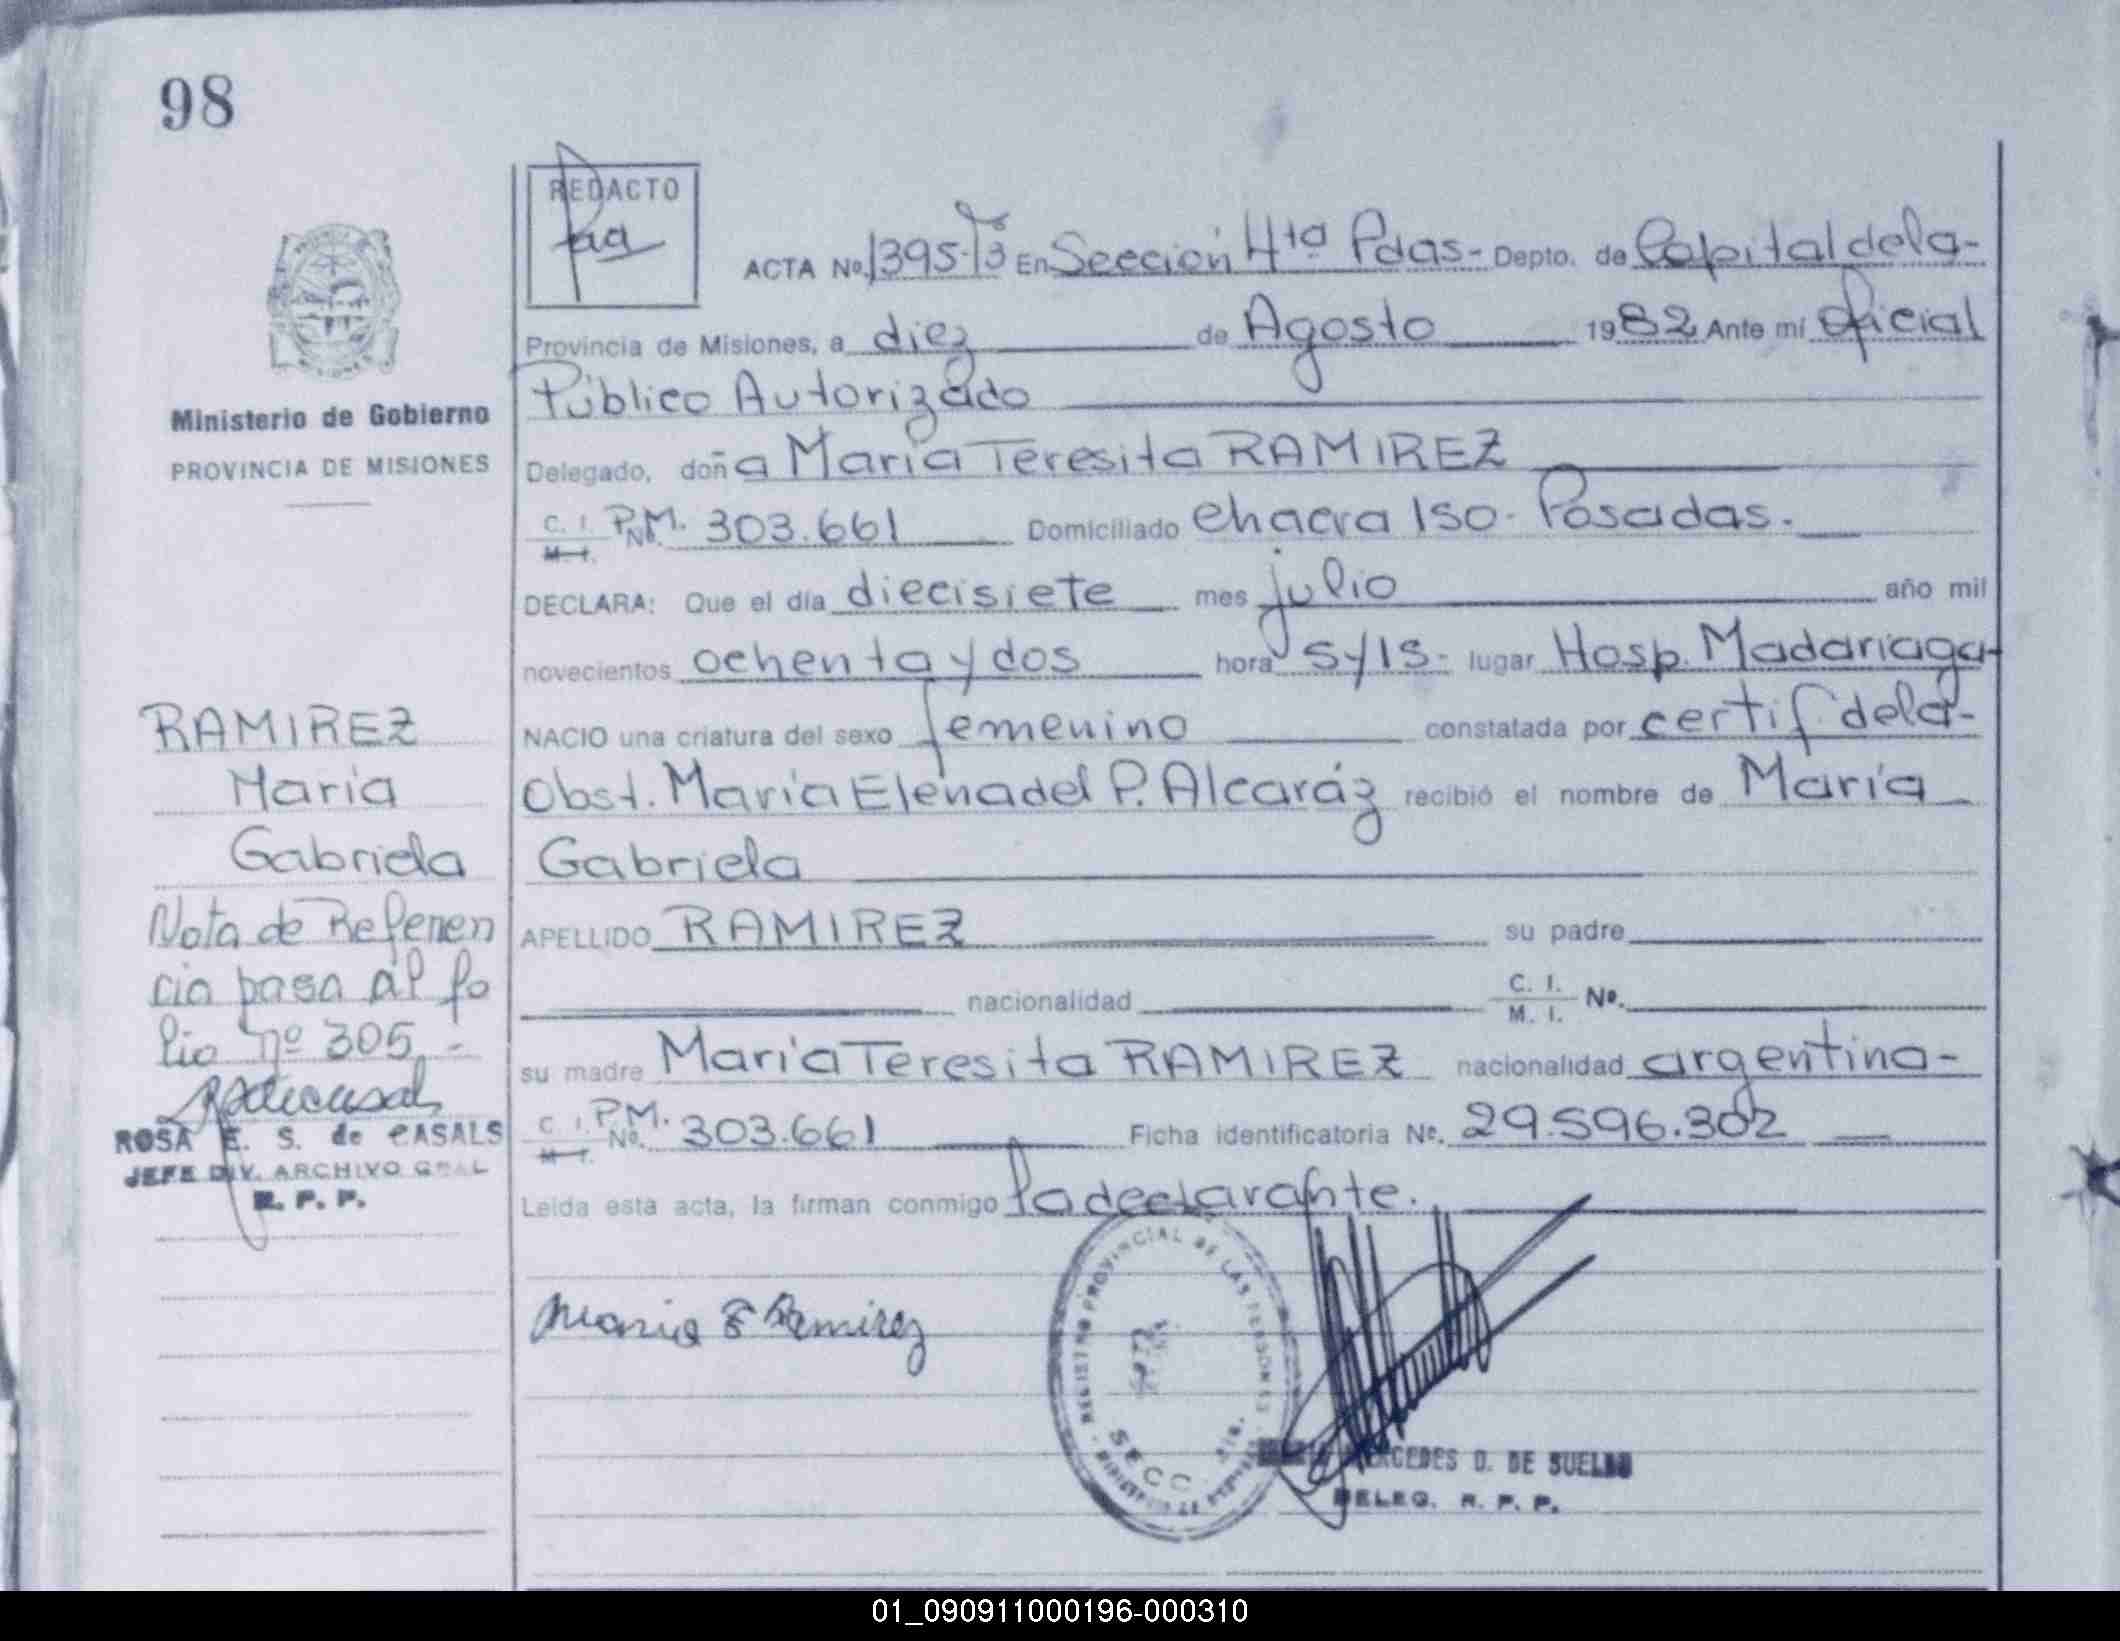 98
REDACTO
ACTA No. 1395-T3 En Sección 4ta Pdas- Depto. de Capital de la-
Provincia de Misiones, a diez de Agosto 1982 Ante mí Oficial
Público Autorizado
Delegado, doña María Teresita RAMIREZ
C. I. P.M.
M. I. No. 303.661 Domiciliado Chacra 150- Posadas.
DECLARA: Que el día diecisiete mes julio año mil
novecientos ochenta y dos hora 5y15- lugar Hosp. Madariaga-
NACIO una criatura del sexo femenino constatada por certif de la-
Obst. María Elena del P. Alcaráz recibió el nombre de María
Gabriela
APELLIDO RAMIREZ su padre
nacionalidad C. I. M. I. No.
su madre María Teresita RAMIREZ nacionalidad argentina-
C. I. P.M.
M. I. No. 303.661 Ficha identificatoria No. 29.596.302
Leída esta acta, la firman conmigo la declarante.
Maria T Ramirez
REGISTRO PROVINCIAL DE LAS PERSONAS
SECC
MERCEDES D. DE SUELDO
DELEG. R. P. P.
Ministerio de Gobierno
PROVINCIA DE MISIONES
RAMIREZ
María
Gabriela
Nota de Referen
cia pasa al fo
lio nº 305.-
ROSA E. S. de CASALS
JEFE DIV. ARCHIVO GRAL
R. P. P.
01_090911000196-000310